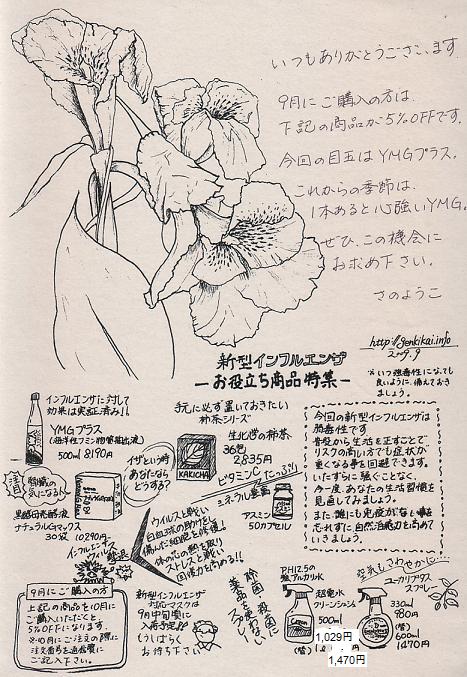 いつもありがとうございます
9月にご購入の方は、
下記の商品が5%OFFです。
今回の目玉はYMGプラス。
これからの季節は、
1本あると心強いYMG。
ぜひ、この機会に
お求め下さい。
さのようこ
http://genkikai.info
2009.9
新型インフルエンザ
ーお役立ち商品特集ー
※いつ強毒性になっても
良いように、備えておき
ましょう。
インフルエンザに対して
効果は実証済み!!
YMGプラス
500ml 8190円
手元に必ず置いておきたい
柿茶シリーズ
生化学の柿茶
36包
2,835円
KAKICHA
ビタミンC たっぷり
ミネラル豊富
アミン
50カプセル
今回の新型インフルエンザは
弱毒性です
普段から生活を正すことで
リスクの高い方でも症状が
重くなる事を回避できます。
いたずらに騒ぐことなく、
今一度、あなたの生活習慣を
見直してみましょう。
また、誰にも免疫がない事を
忘れずに、自然治癒力を高めて
いきましょう。
注目
イザという時
あなたなら
どうする?
黒麹
ナチュラルGマックス
30袋 10290円
インフルエンザ
ウイルス 撃退
ウイルスと戦い
白血球の助けをし
傷んだ細胞を修復!
体の芯の熱を取り
ストレスと戦い
回復力を高める!!
除菌 殺菌に
薬品を使わない
PH12.5の
強アルカリ水
超電水
クリーンシュシュ
500ml
1,029円
(替)
1,470円
空気もさわやかに…
ユーカリプタス
スプレー
330ml
980円
(替)
600ml
1470円
9月にご購入の方
上記の商品を10月に
ご購入いただくと
5%OFFになります。
※10月にご注文の際に
注文番号を通信欄に
ご記入下さい。
新型インフルエンザ
対応マスクは
9月中旬頃に
入荷予定!!
しばらく
お待ち下さい